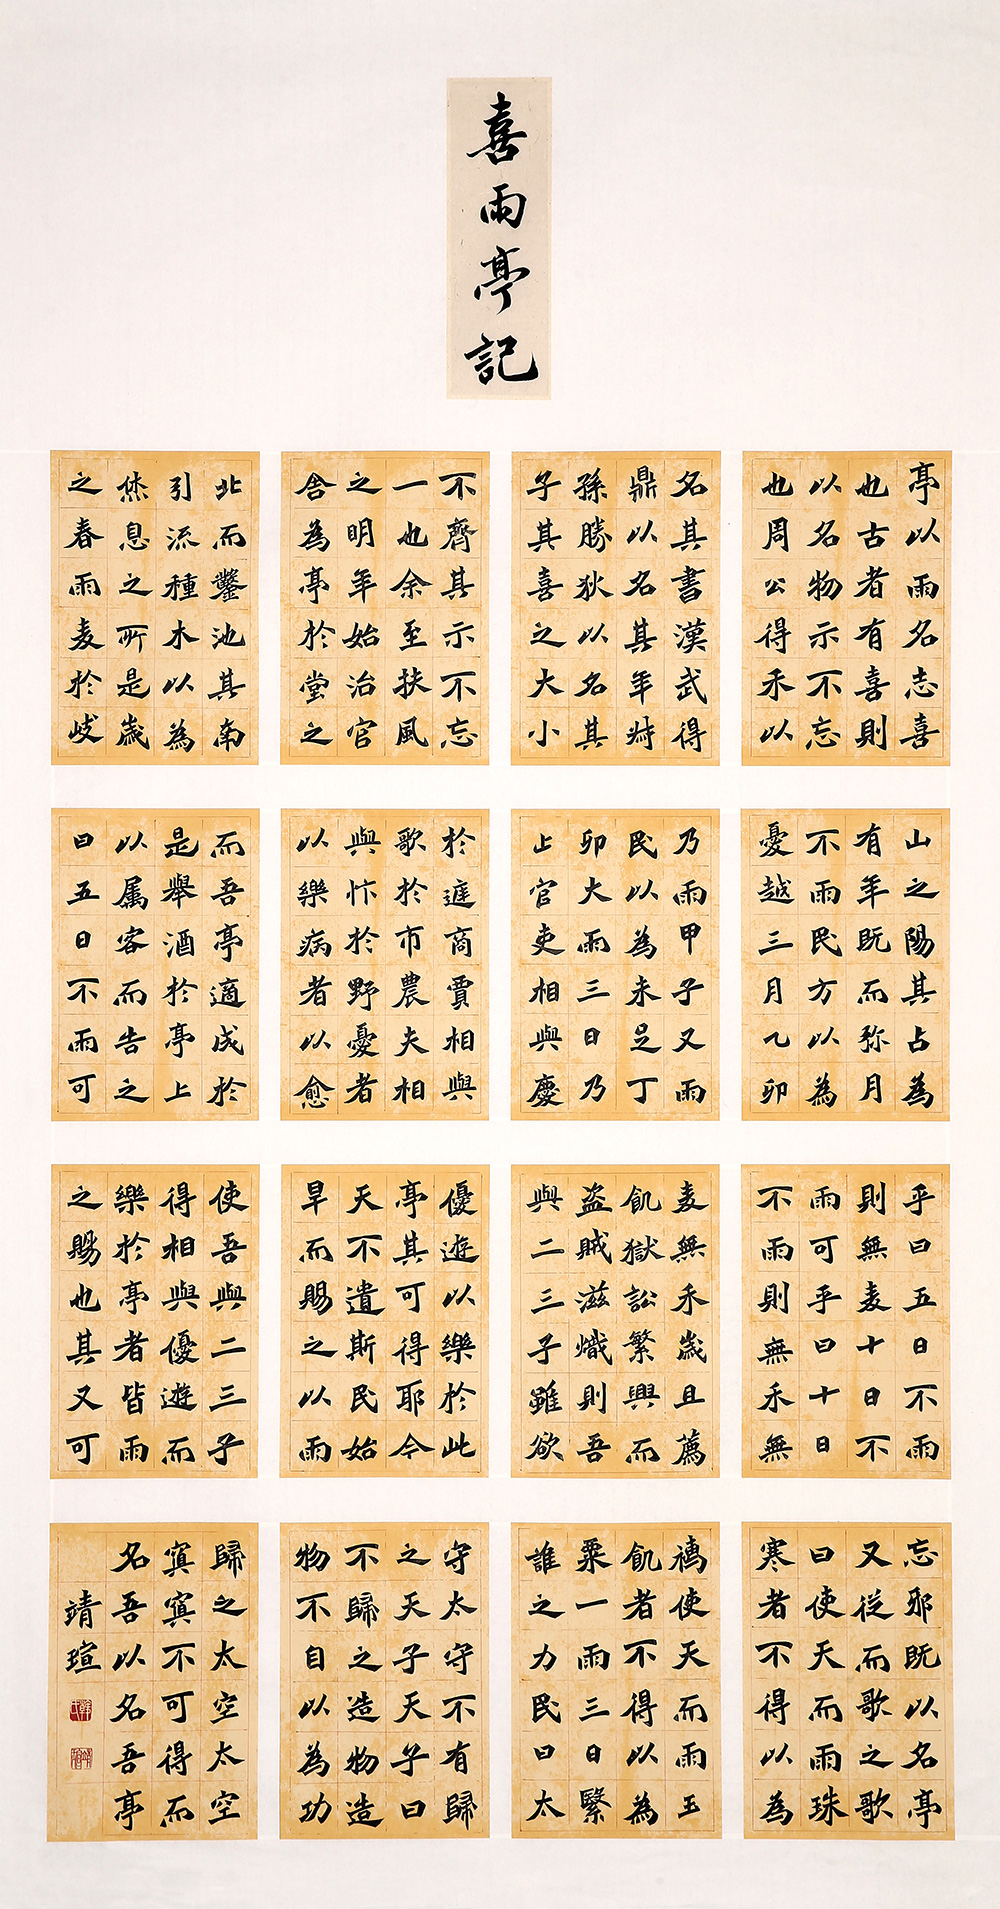 喜雨亭記
亭以雨名志喜
也古者有喜則
以名物示不忘
也周公得禾以
名其書漢武得
鼎以名其年叔
孫勝狄以名其
子其喜之大小
不齊其示不忘
一也余至扶風
之明年始治官
舍為亭於堂之
北而鑿池其南
引流種木以為
休息之所是歲
之春雨麦於岐
山之陽其占為
有年既而弥月
不雨民方以為
憂越三月乙卯
乃雨甲子又雨
民以為未足丁
卯大雨三日乃
止官吏相與慶
於庭商賈相與
歌於市農夫相
與忭於野憂者
以樂病者以愈
而吾亭適成於
是舉酒於亭上
以属客而告之
曰五日不雨可
乎曰五日不雨
則無麦十日不
雨可乎曰十日
不雨則無禾無
麦無禾歲且薦
飢獄訟繁興而
盜賊滋熾則吾
與二三子雖欲
優遊以樂於此
亭其可得耶今
天不遺斯民始
旱而賜之以雨
使吾與二三子
得相與優遊而
樂於亭者皆雨
之賜也其又可
忘邪既以名亭
又從而歌之歌
曰使天而雨珠
寒者不得以為
襦使天而雨玉
飢者不得以為
粟一雨三日繄
誰之力民曰太
守太守不有歸
之天子天子曰
不歸之造物造
物不自以為功
歸之太空太空
冥冥不可得而
名吾以名吾亭
靖瑄